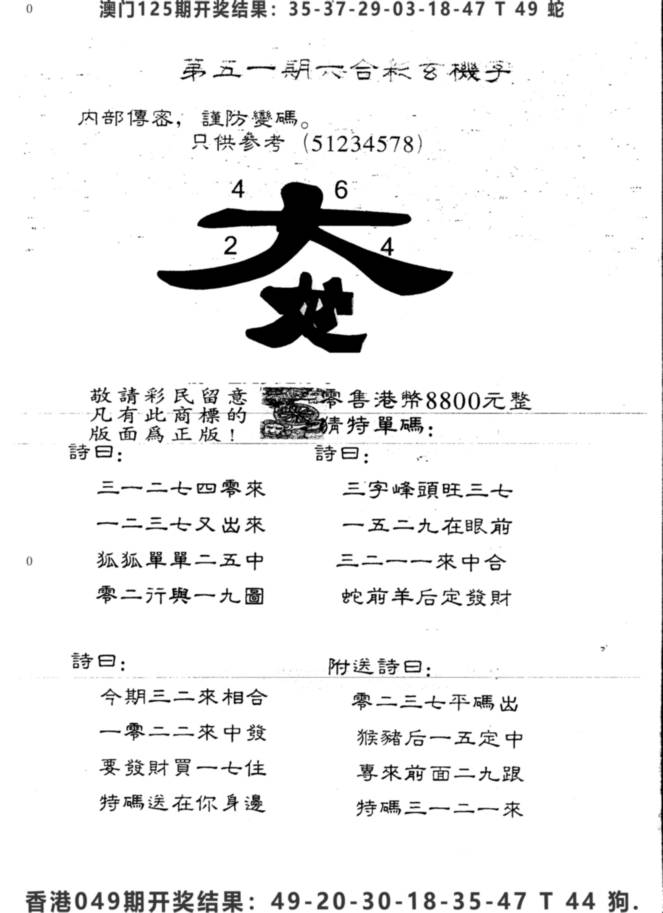 0
澳门125期开奖结果：35-37-29-03-18-47 T 49 蛇
第五一期六合彩玄機字
内部傳密，謹防變碼。
只供參考 (51234578)
4
6
2
4
敬請彩民留意
凡有此商標的
版面爲正版！
零售港幣8800元整
猜特單碼：
詩曰：
三一二七四零來
一二三七又出來
狐狐單單二五中
零二行與一九圖
詩曰：
三字峰頭旺三七
一五二九在眼前
三二一一來中合
蛇前羊后定發財
0
詩曰：
今期三二來相合
一零二二來中發
要發財買一七住
特碼送在你身邊
附送詩曰：
零二三七平碼出
猴豬后一五定中
專來前面二九跟
特碼三一二一來
香港049期开奖结果：49-20-30-18-35-47 T 44 狗.